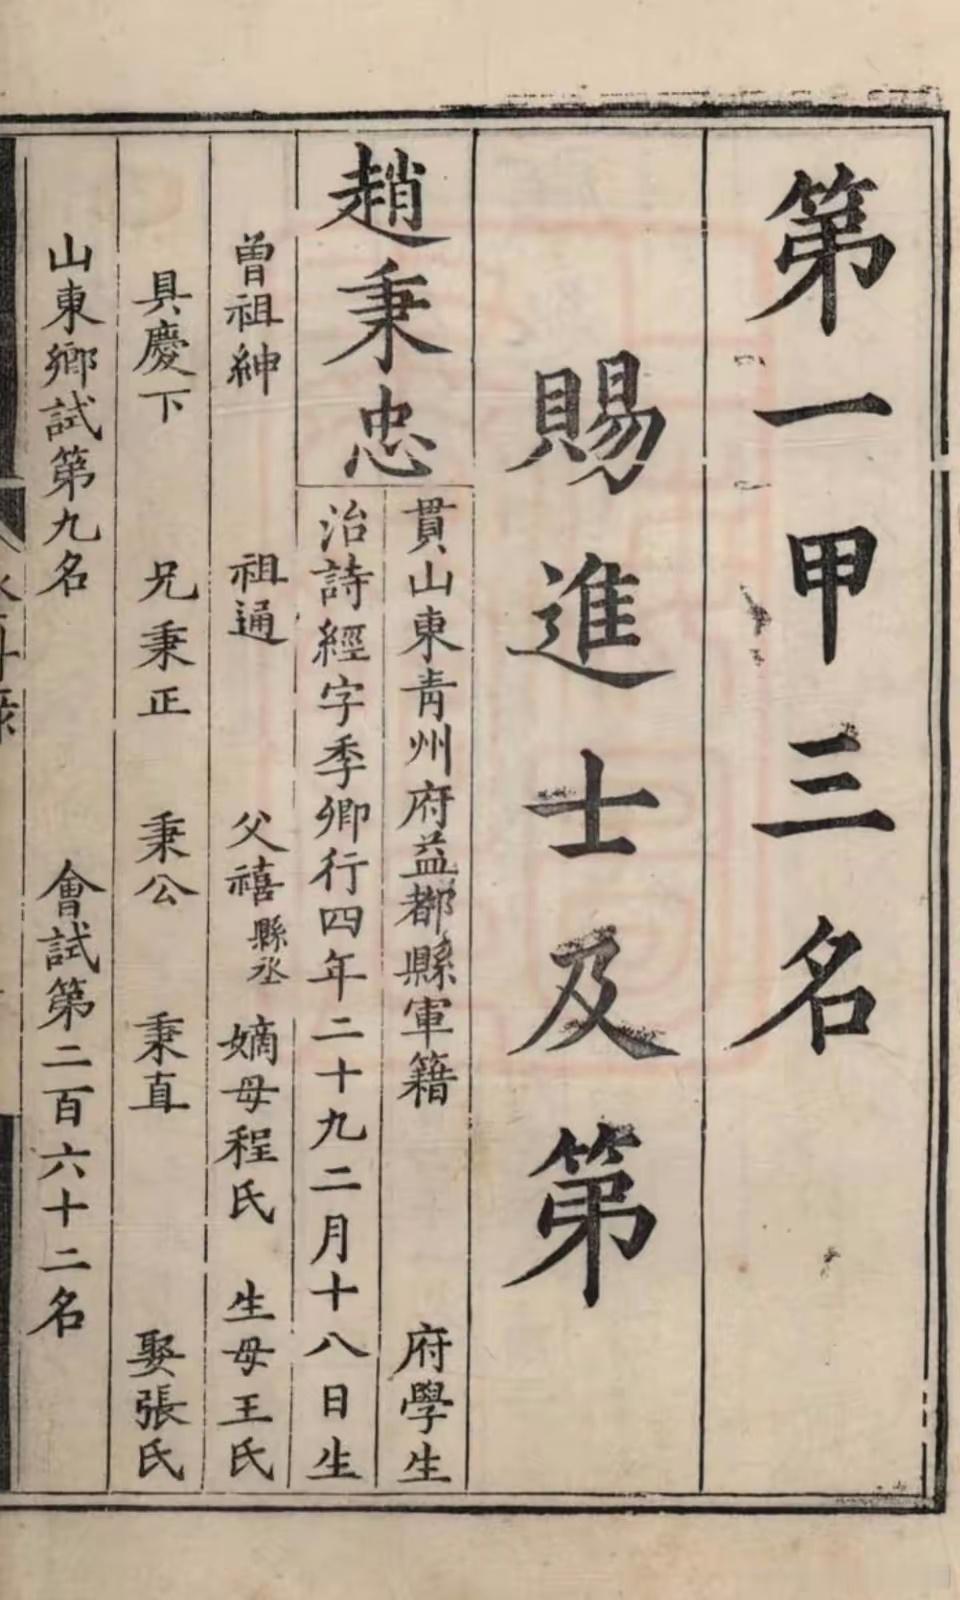 第一甲三名
賜進士及第
趙秉忠
貫山東青州府益都縣軍籍 府學生
治詩經字季卿行四年二十九二月十八日生
曾祖紳 祖通 父禧縣丞 嫡母程氏 生母王氏
具慶下 兄秉正 秉公 秉直 娶張氏
山東鄉試第九名 會試第二百六十二名